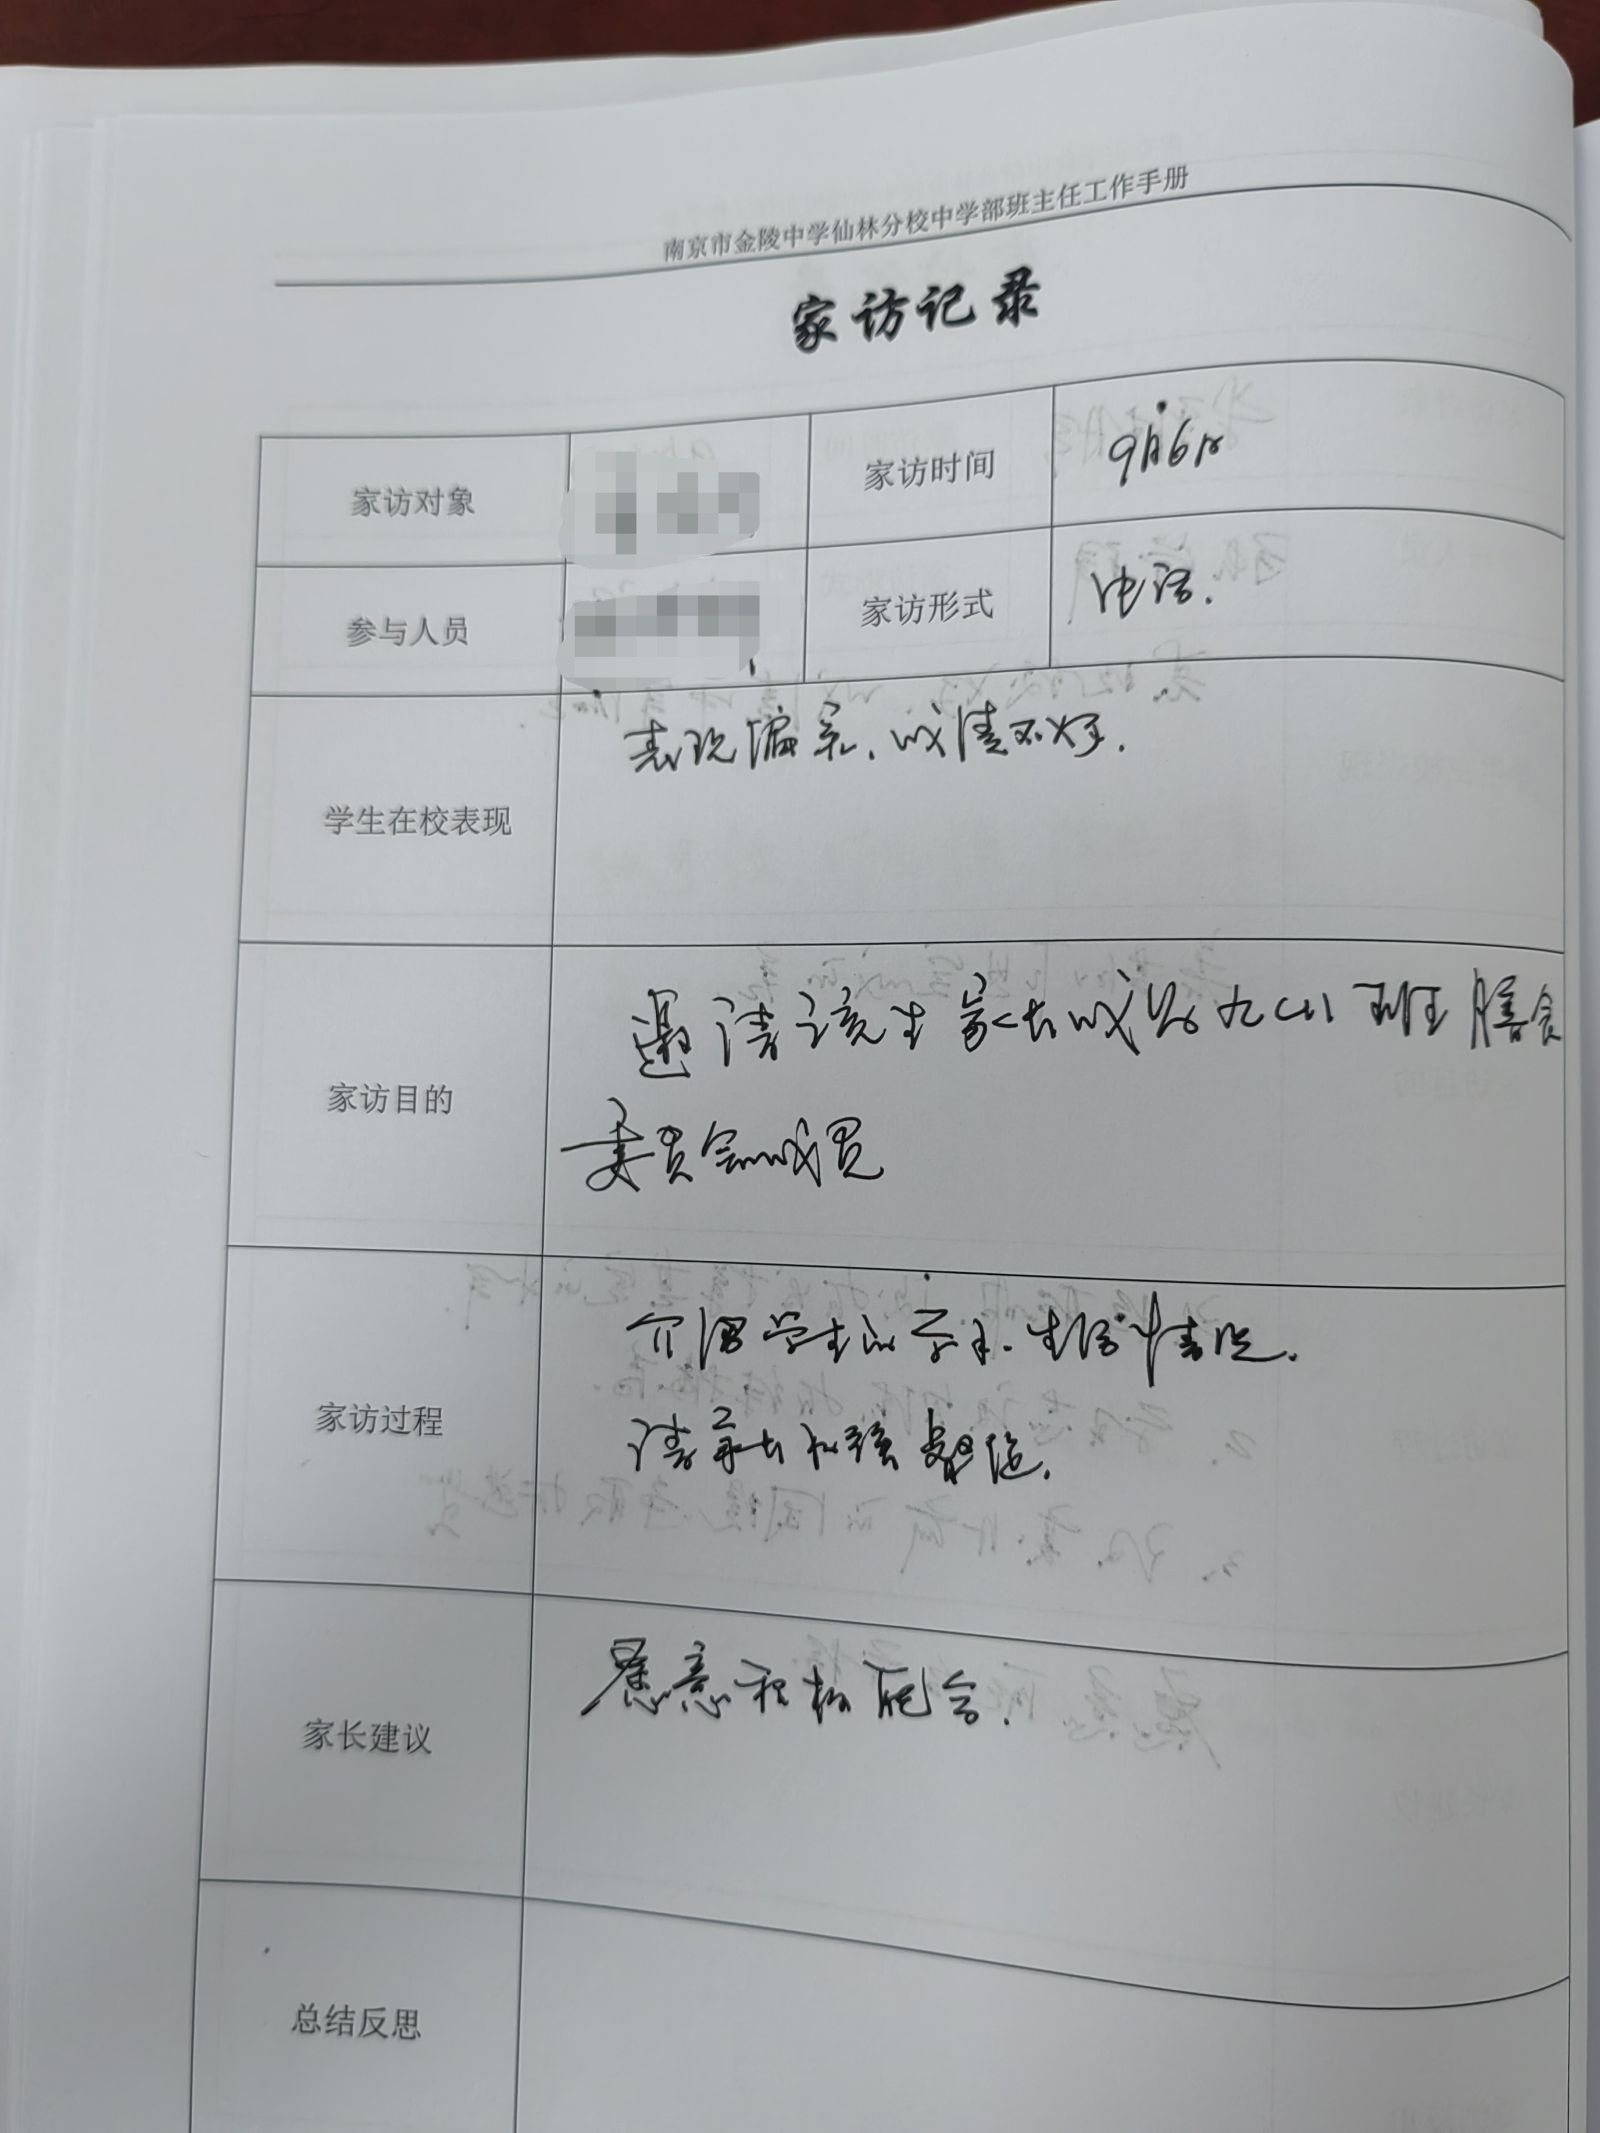 南京市金陵中学仙林分校中学部班主任工作手册
家访记录
家访对象
家访时间
9月6日
参与人员
家访形式
电话.
学生在校表现
表现偏弱,成绩不好.
家访目的
邀请该生家长成为九(1)班膳食
委员会成员
家访过程
介绍学生的学习、生活情况.
请家长加强教
家长建议
愿意积极配合.
总结反思